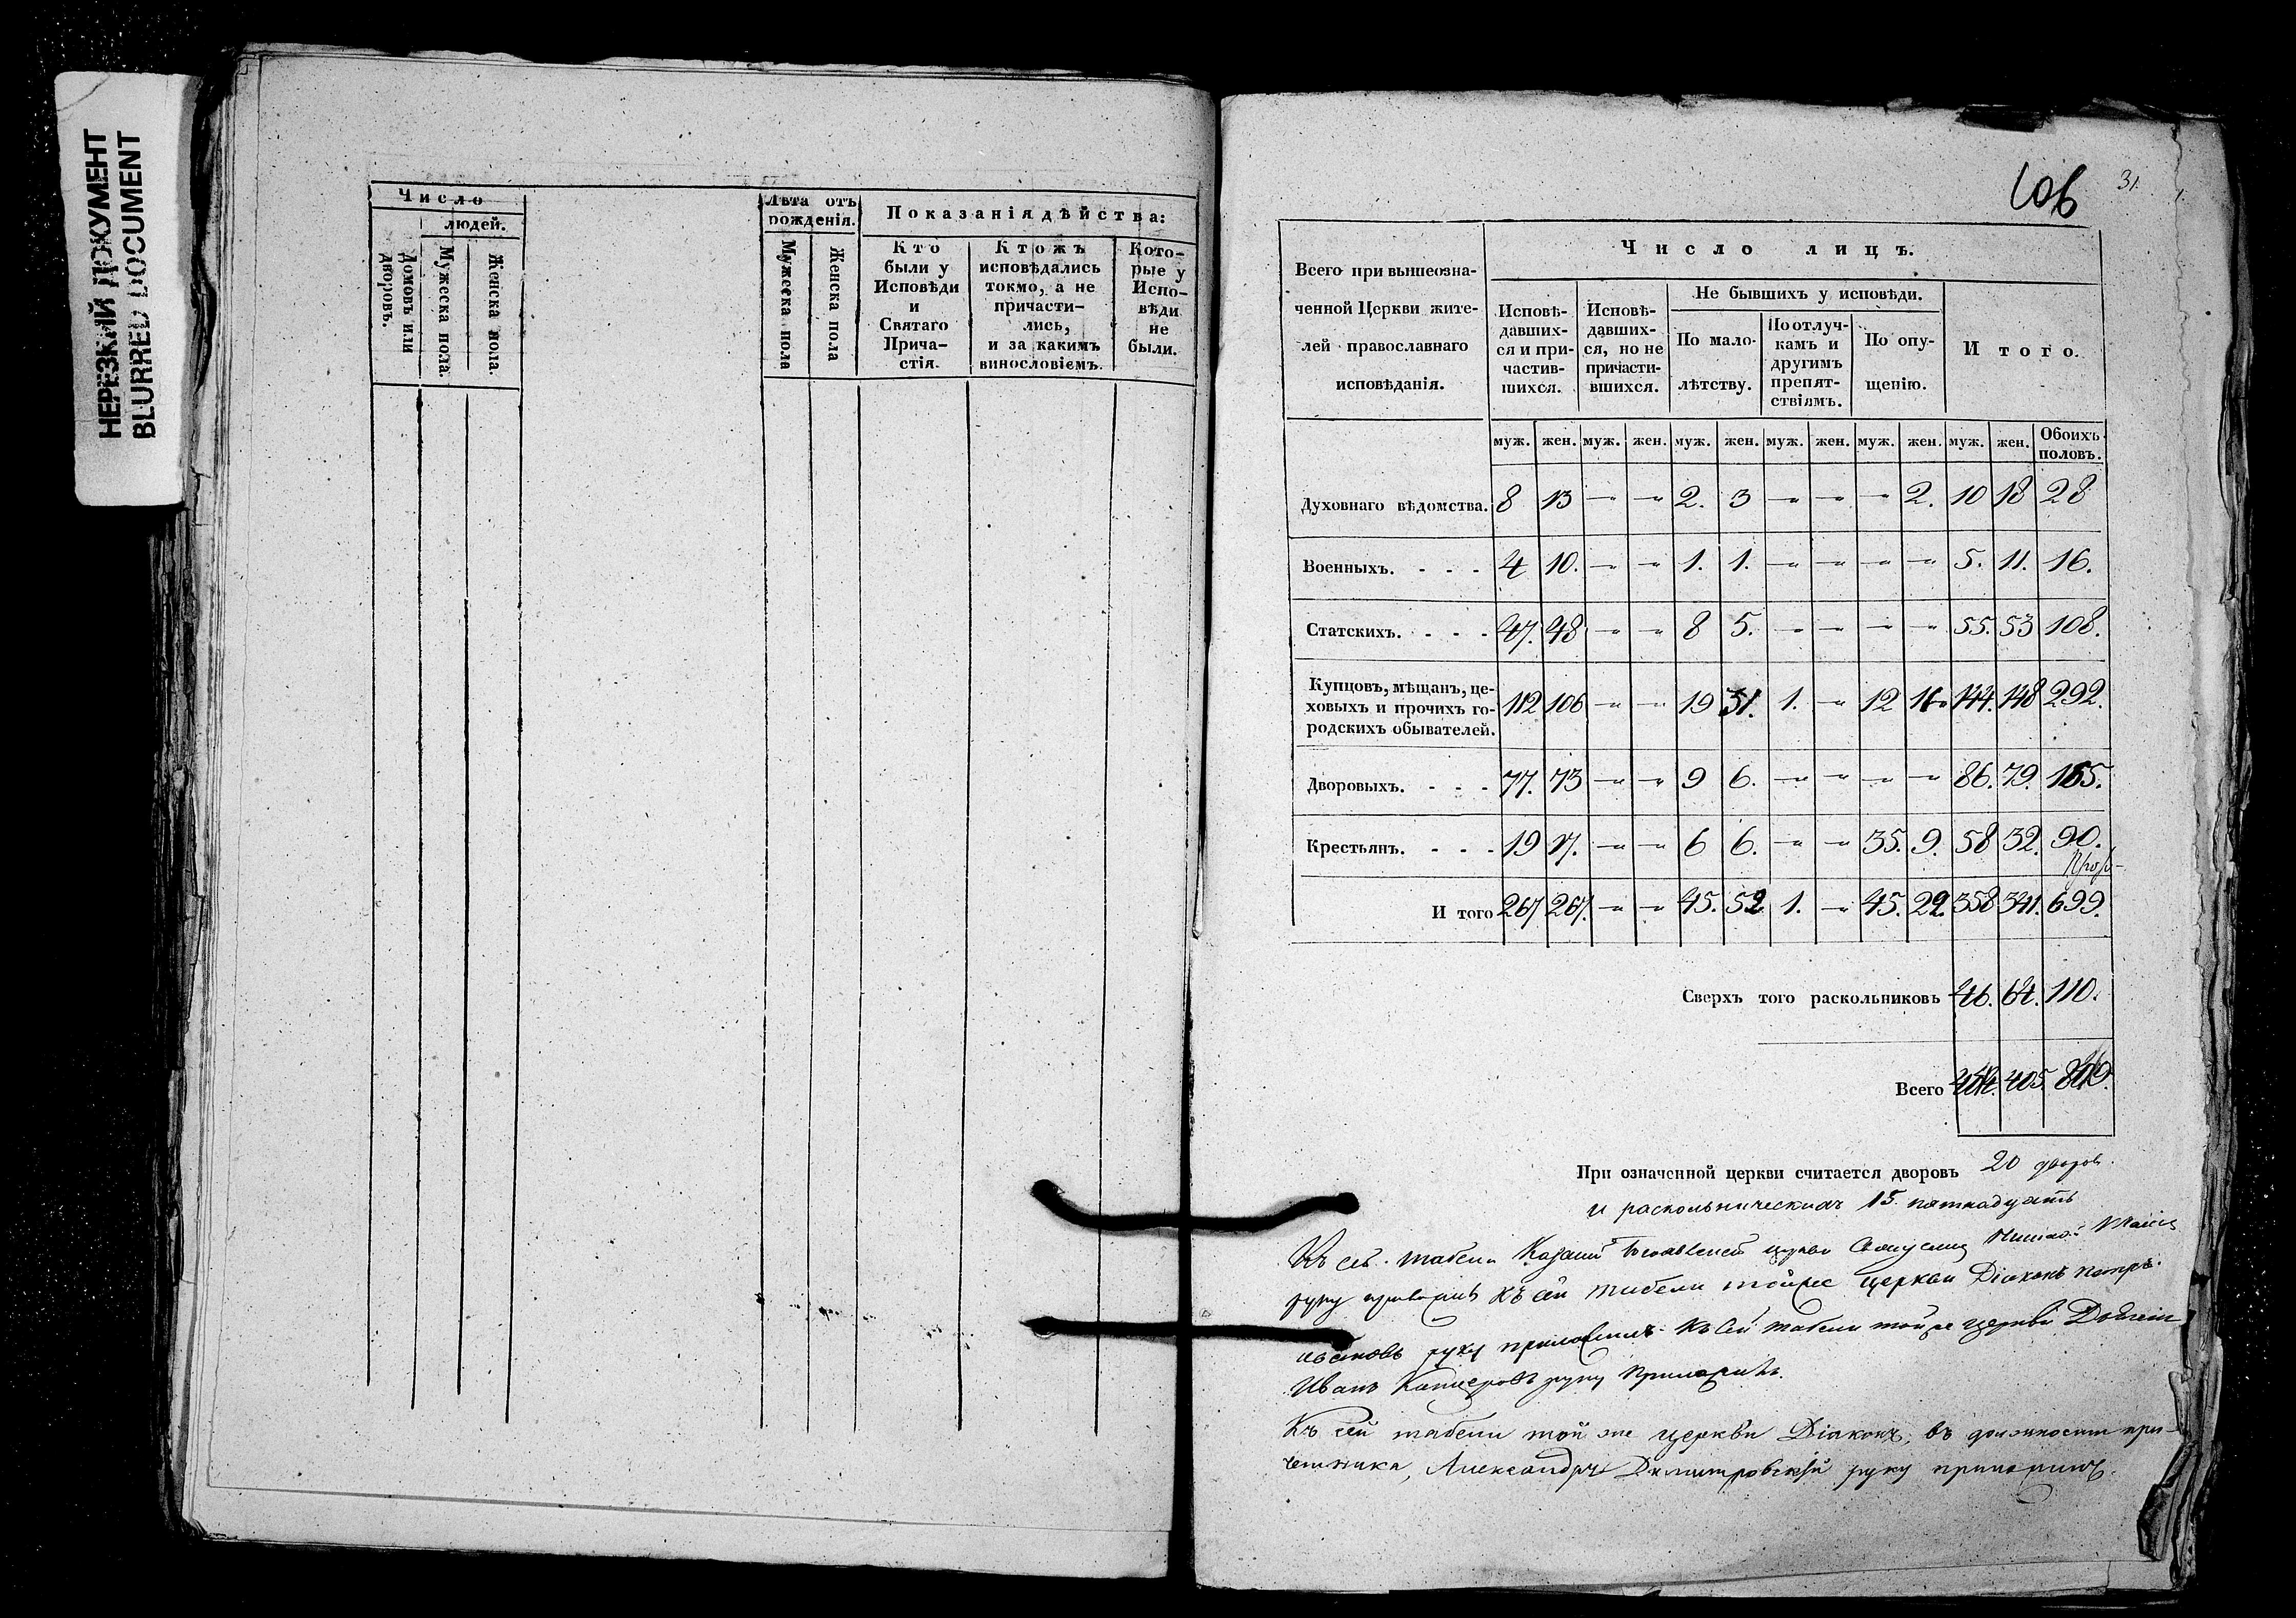 НЕРЕЗКИЙ ДОКУМЕНТ
BLURRED DOCUMENT
Число
людей.
Домовъ или дворовъ.
Мужеска пола.
Женска пола.
Лѣта отъ
рожденія.
Мужеска пола
Женска пола
Показанія дѣйства:
Кто
были у
Исповѣди
и
Святаго
Прича-
стія.
Ктожъ
исповѣдались
токмо, а не
причасти-
лись,
и за какимъ
винословіемъ.
Кото-
рые у
Испо-
вѣди
не
были.
106
31.
Всего при вышеозна-
ченной Церкви жите-
лей православнаго
исповѣданія.
Число лицъ.
Исповѣ-
давших-
ся и при-
частив-
шихся.
Исповѣ-
давших-
ся, но не
причасти-
вшихся.
Не бывшихъ у исповѣди.
По мало-
лѣтству.
По отлуч-
камъ и
другимъ
препят-
ствіямъ.
По опу-
щенію.
И того.
муж. жен. муж. жен. муж. жен. муж. жен. муж. жен. муж. жен. Обоихъ половъ.
Духовнаго вѣдомства. 8 13 - - 2. 3 - - - 2. 10 18 28
Военныхъ. - - - 4 10. - - 1. 1. - - - - 5. 11. 16.
Статскихъ. - - - 47. 48 - - 8 5. - - - - 55. 53 108.
Купцовъ, мѣщанъ, це-
ховыхъ и прочихъ го-
родскихъ обывателей. 112 106 - - 19 31. 1. - 12 11 144. 148 292.
Дворовыхъ. - - - 77. 73 - - 9 6. - - - - 86. 79. 165.
Крестьянъ. - - - 19 17. - - 6 6. - - 35. 9. 58 32. 90.
И того 267 267. - - 45. 52 1. - 45. 22. 358 341. 699.
Сверхъ того раскольниковъ 46. 64. 110.
Всего 405
При означенной церкви считается дворовъ 20 дворов.
и раскольническихъ 15. пятнадцать
Къ сей табели церкви
руку къ сей табели тойже церкви Діаконъ Петръ
руку приложилъ. Къ сей табели тойже церкви
Иванъ руку приложилъ.
Къ сей табели той же церкви Діаконъ, въ должности при-
четника, Александръ Димитровскій руку приложилъ.